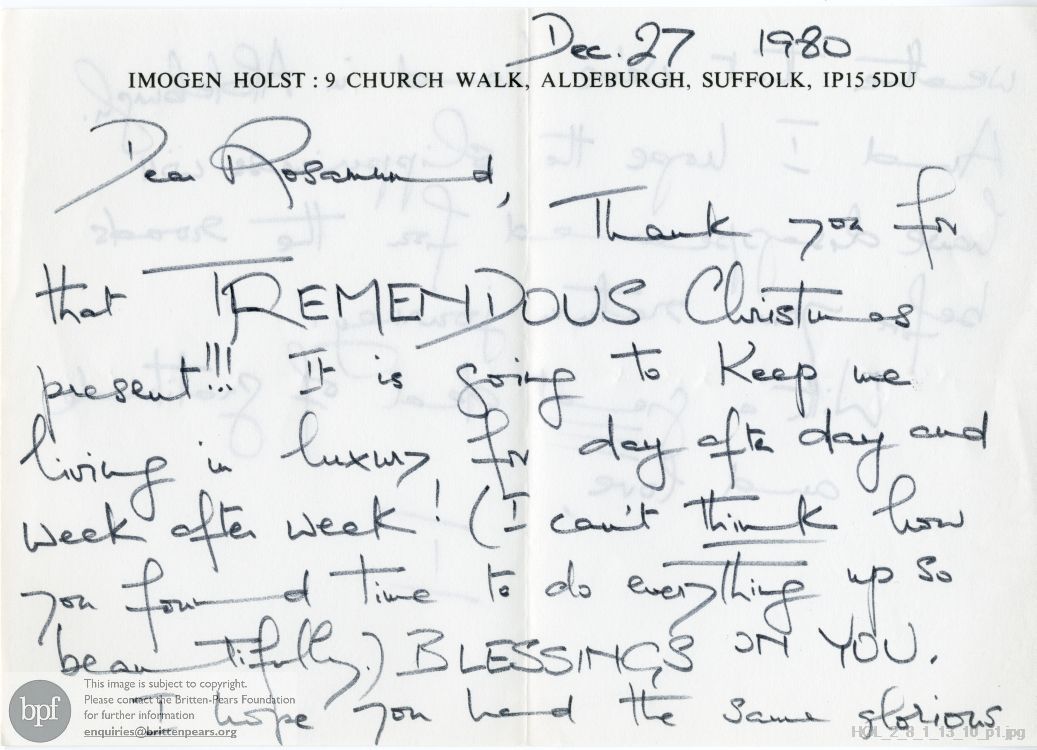 Dec. 27 1980
IMOGEN HOLST : 9 CHURCH WALK, ALDEBURGH, SUFFOLK, IP15 5DU
Dear Rosamund,
Thank you for
that TREMENDOUS Christmas
present!!! It is going to keep me
living in luxury for day after day and
week after week! (I can't think how
you found time to do everything up so
beautifully.) BLESSINGS ON YOU.
I hope you had the same glorious
bpf
This image is subject to copyright.
Please contact the Britten-Pears Foundation
for further information
enquiries@brittenpears.org
HOL_2_8_1_13_10_p1.jpg